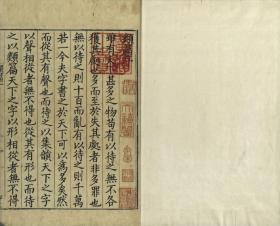 類篇序
雖有天下甚多之物苟有以待之無不各
獲其處也多而至於失其處者非多罪也
無以待之則十百而亂有以待之則千萬
若一今夫字書之於天下可以為多矣然
而從其有聲也而待之以集韻天下之字
以聲相從者無不得也從其有形也而待
之以類篇天下之字以形相從者無不得